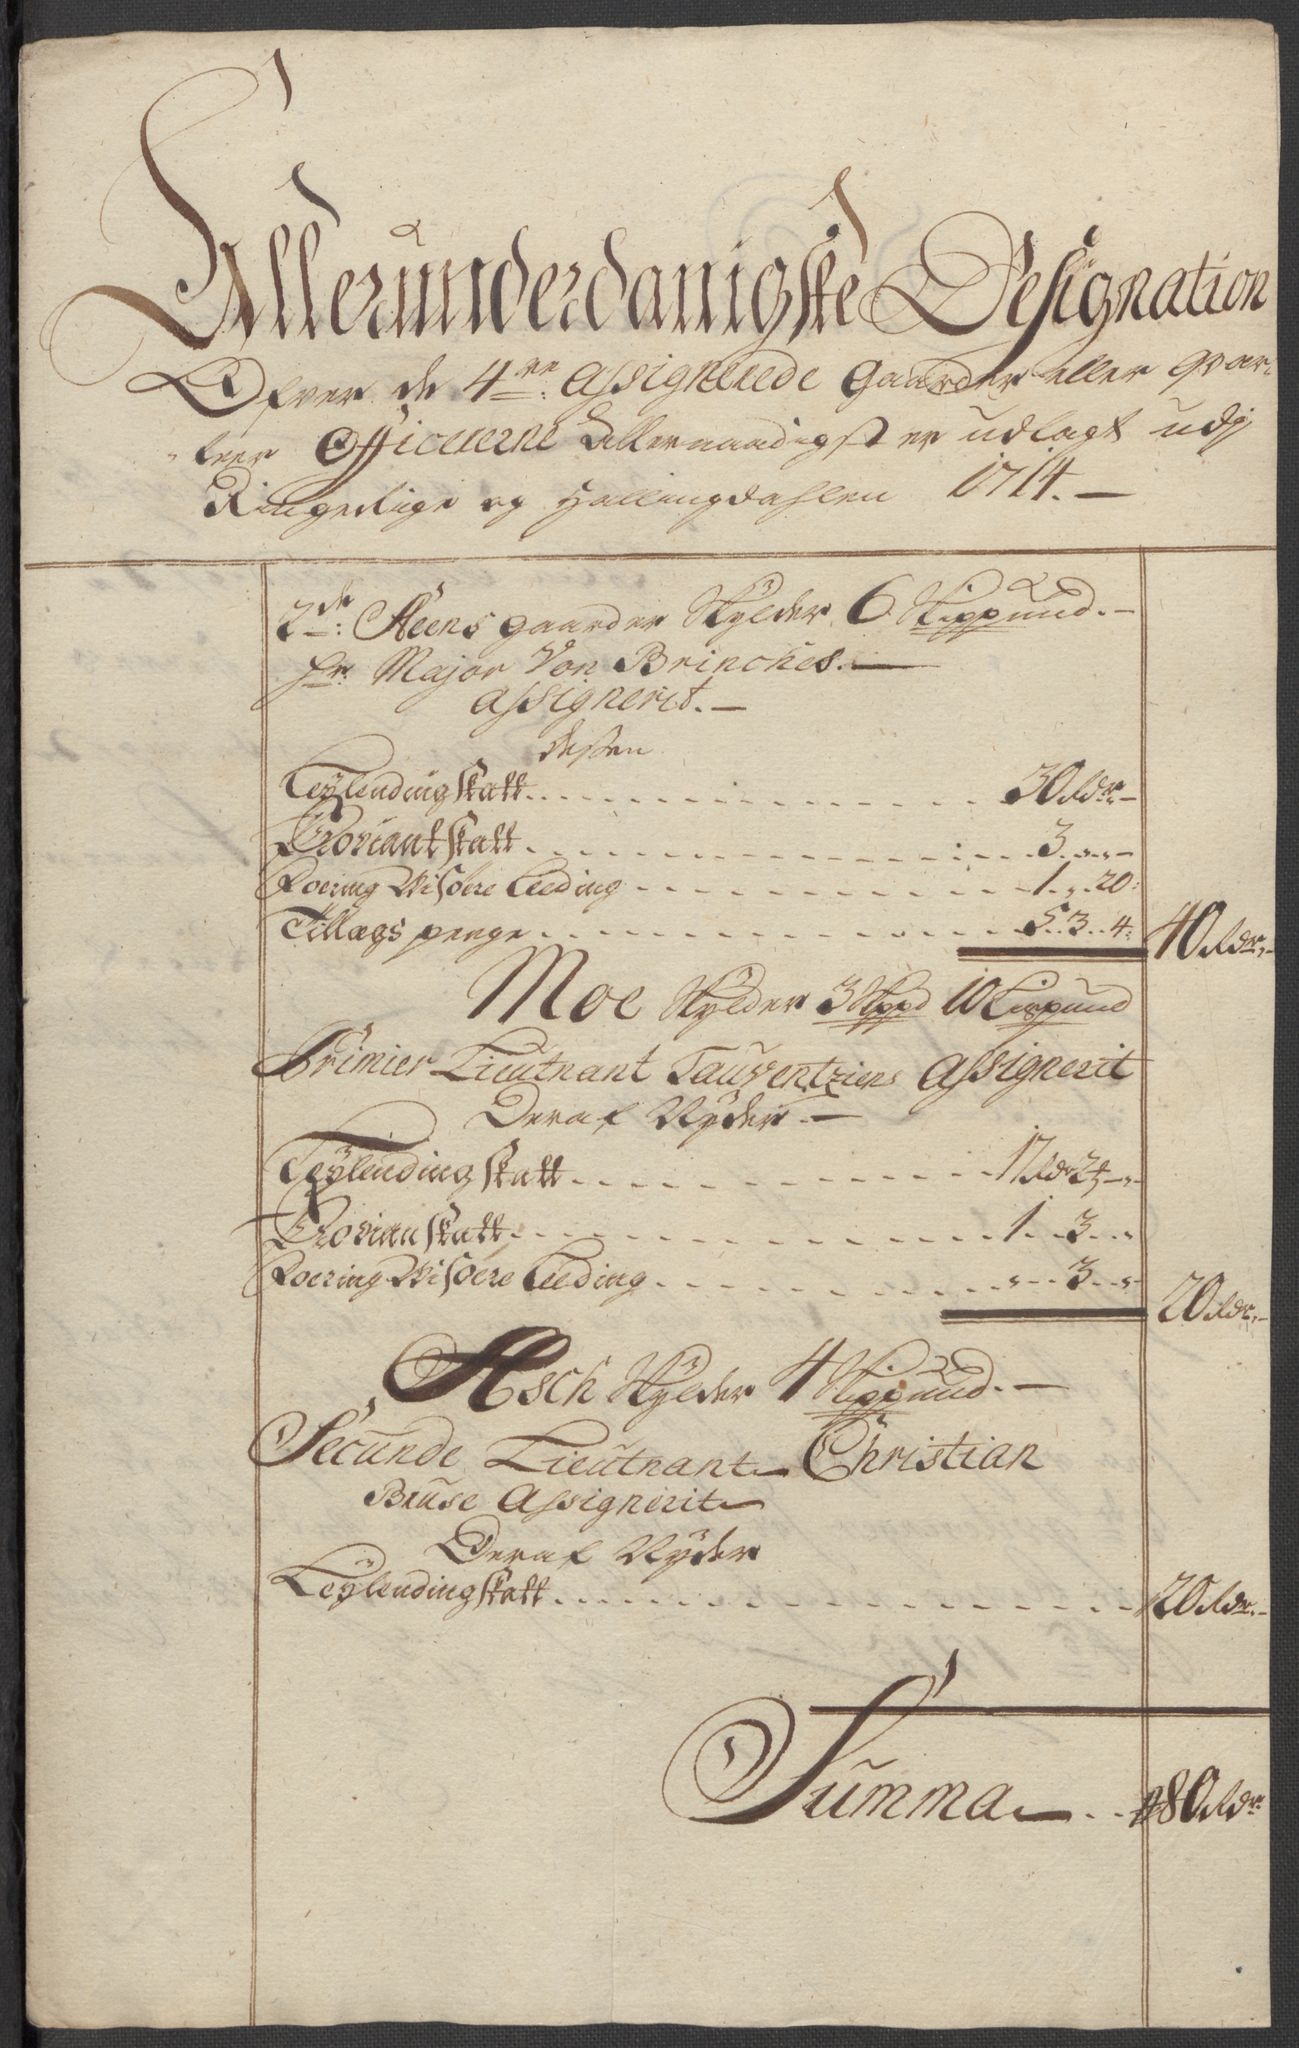 Allerunderdanigste Designation
Ofver de 4re: Assignerede Gaarder eller qvar-
teer Officererne Allernaadigst er udlagt udj
Ringerige og Hallingdahlen 1714.
2de: Steens gaarder Skylder 6 Skippund.
Hr: Major Von Brinckes.
Assignerit.
desen
Leylendingskatt 30 Rdr
Proviantskatt 3
Roering Wisøere Leeding 1 „ 20:
Tillægs penge 5. 3. 4: 40 Rdr
Moe Skylder 3 Skppd 10 Lispund
Primier Lieutnant Tauventziens Assignerit
Deraf Nyder
Leylendingskatt 17 Rdr 2
Provianskatt 1. 3
Roering Wisøere Leeding 3 20 Rdr
Asch Skylder 4 Skippund.
Secunde Lieutnant Christian
Bruse Assignerit
Deraf Nyder
Leylendingskatt 20 Rdr
Summa 80 Rdr